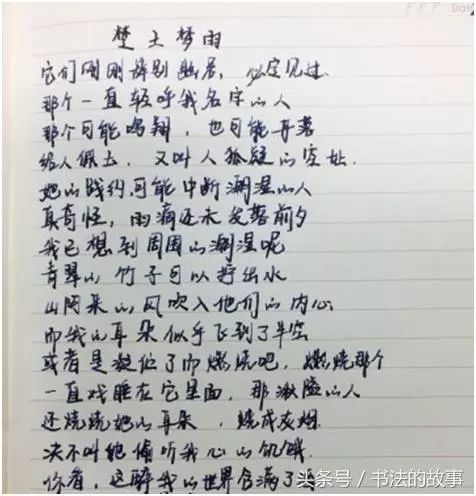 楚王梦雨
它们刚刚辞别幽居，必定见过
那个一直轻呼我名字的人
那个可能鸣翔，也可能开落
给人佩玉，又叫人狐疑的空址.
她的践约可能中断潮湿的人
真奇怪，雨滴还未发落前夕
我已想到周围的潮湿呢
青翠的竹子可以拧出水
山阿来的风吹入他们的内心
而我的耳朵似乎飞到了半空
或者是凝伫了而燃烧吧，燃烧那个
一直戏睡在它里面，那湫隘的人
还烧烧她的耳朵，烧成灰烟.
决不叫她偷听我心的饥饿.
你看，这醉我的世界含满了
头条号／书法的故事